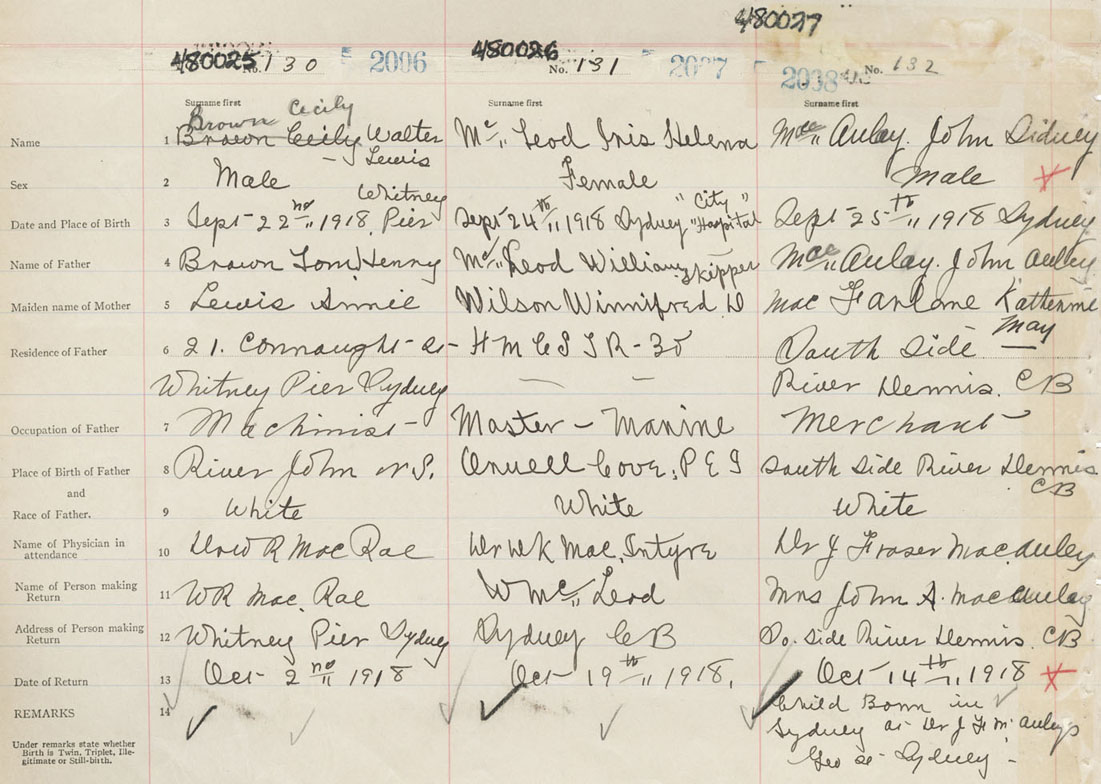 480027
480025 No. 130 2006 480026 No. 131 2037 2038 No. 132
Surname first Surname first Surname first
Brown Cecily
Name 1 Brown Cecily Walter Mc Leod Iris Helena Mac Aulay. John Sidney
Lewis
Sex 2 Male Female Male
Whitney "City"
Date and Place of Birth 3 Sept 22nd 1918, Pier Sept 24th 1918 Sydney "Hospital" Sept 25th 1918 Sydney
Name of Father 4 Brown Tom Henry Mc Leod William Skipper Mac Aulay. John Aulay
Maiden name of Mother 5 Lewis Annie Wilson Winnifred D Mac Farlane Katherine
May
Residence of Father 6 21. Connaught St H M C S T R-30 South Side
Whitney Pier Sydney — — River Dennis. CB
Occupation of Father 7 Machinist Master - Marine Merchant
Place of Birth of Father 8 River John N S. Orwell Cove, P E I South Side River Dennis
and CB
Race of Father. 9 White White White
Name of Physician in
attendance 10 R Mac Rae Dr W K Mac Intyre Dr J Fraser Macauley
Name of Person making
Return 11 W R Mac Rae W Mc Leod Mrs John A. Macaulay
Address of Person making
Return 12 Whitney Pier Sydney Sydney C B So. Side River Dennis. CB
Date of Return 13 Oct 2nd 1918 Oct 19th 1918. Oct 14th 1918
REMARKS 14 Child Born in
Sydney at Dr J F McAuleys
Under remarks state whether
Birth is Twin, Triplet, Ille-
gitimate or Still-birth.
Geo St Sydney